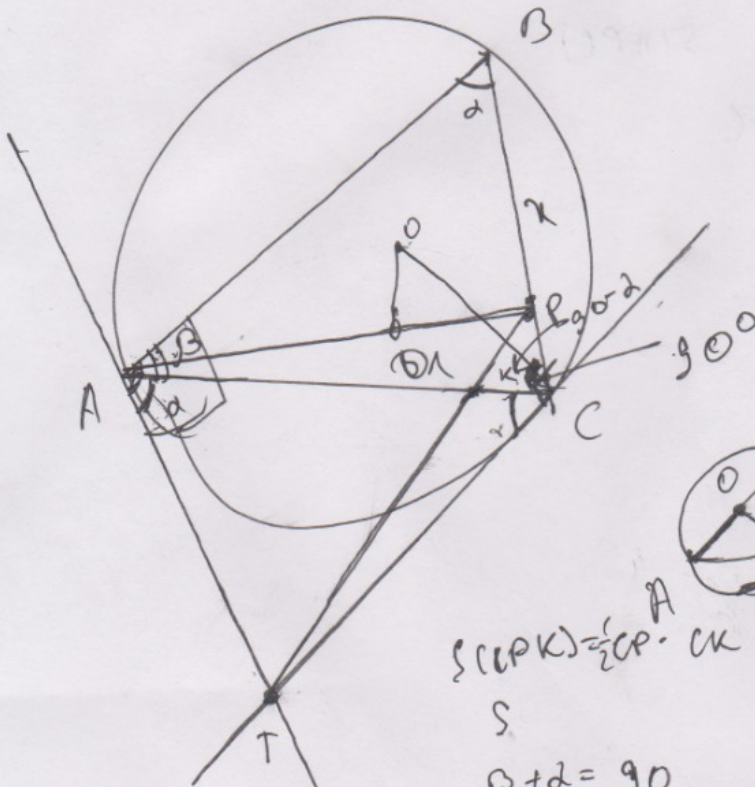 B
α
x
O
P
90-α
90°
β
A
α
K
C
α
O
A
S(CPK)=½CP· CK
S
T
β+α= 90